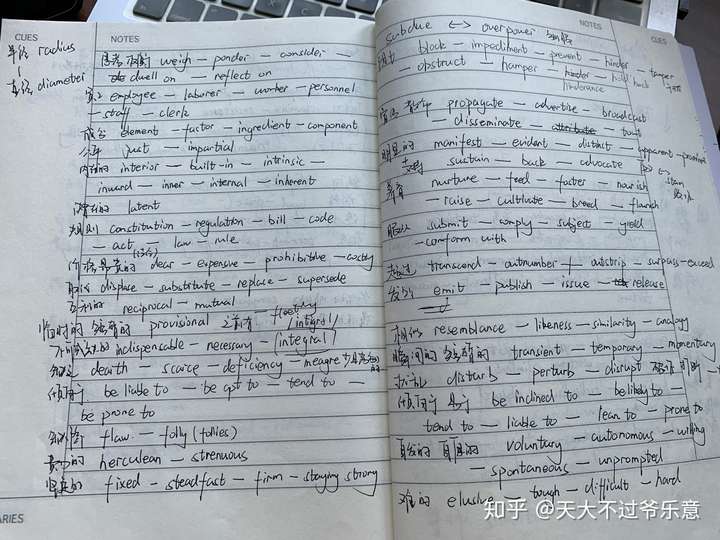 CUES
半径 radius
直径 diameter
NOTES
思考 权衡 weigh — ponder — consider —
dwell on — reflect on
员工 employee — laborer — worker — personnel
— staff — clerk
成分 element — factor — ingredient — component
公平 just — impartial
内在的 interior — built-in — intrinsic —
inward — inner — internal — inherent
潜在的 latent
规则 constitution — regulation — bill — code
— act — law — rule
价格昂贵的 dear — expensive — prohibitive — costly
取代 displace — substitute — replace — supersede
互利的 reciprocal — mutual
临时的 短暂的 provisional 之前有 — fleeting
(integral)
不可或缺的 indispensable — necessary — (integral)
缺乏 dearth — scarce — deficiency — meagre
倾向于 be liable to — be apt to — tend to —
be prone to
缺陷 flaw — folly (follies)
费力的 herculean — strenuous
坚定的 fixed — steadfast — firm — staying strong
ARIES
NOTES
CUES
subdue <-> overpower
阻止 block — impediment — prevent — hinder — tamper
— obstruct — hamper — hinder — hold back
hinderance
宣传 散布 propagate — advertise — broadcast
— disseminate — tout
明显的 manifest — evident — distinct — apparent — prominent
支持 sustain — back — advocate
养育 nurture — feed — foster — nourish
— raise — cultivate — breed — flourish
<-> stem
服从 submit — comply — subject — yield
— conform with
超过 transcend — outnumber — outstrip — surpass — exceed
发出 emit — publish — issue — release
相似 resemblance — likeness — similarity — analogy
瞬间的 短暂的 transient — temporary — momentary
扰乱 disturb — perturb — disrupt
倾向于 易于 be inclined to — be likely to
tend to — liable to — lean to — prone to
自发的 自愿的 voluntary — autonomous — willing
— spontaneous — unprompted
难的 elusive — tough — difficult — hard
知乎 @天大不过爷乐意